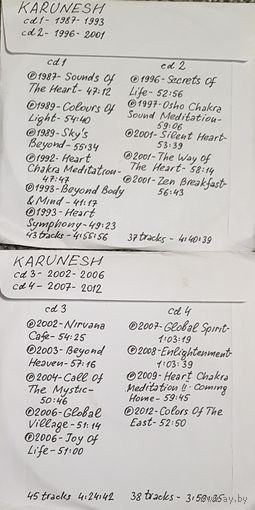 KARUNESH
cd 1 - 1987-1993
cd 2 - 1996-2001
cd 1
℗1987-Sounds Of
The Heart- 47:12
℗1989-Colours Of
Light- 54:40
℗1989-Sky's
Beyond- 55:34
℗1992-Heart
Chakra Meditation-
47:47
℗1993-Beyond Body
& Mind - 41:17
℗1993-Heart
Symphony-49:23
43 tracks - 4:55:56
cd 2
℗1996-Secrets Of
Life- 52:56
℗1997-Osho Chakra
Sound Meditation-
59:06
℗2001-Silent Heart-
53:39
℗2001-The Way Of
The Heart- 58:14
℗2001-Zen Breakfast-
56:43
37 tracks - 4:40:39
KARUNESH
cd 3 - 2002-2006
cd 4 - 2007-2012
cd 3
℗2002-Nirvana
Cafe- 54:25
℗2003-Beyond
Heaven-57:16
℗2004-Call Of
The Mystic-
50:46
℗2006-Global
Village-51:14
℗2006-Joy Of
Life-51:00
45 tracks 4:24:42
cd 4
℗2007-Global Spirit-
1:03:19
℗2008-Enlightenment-
1:03:39
℗2009-Heart Chakra
Meditation II: Coming
Home- 59:45
℗2012-Colors Of The
East-52:50
38 tracks -